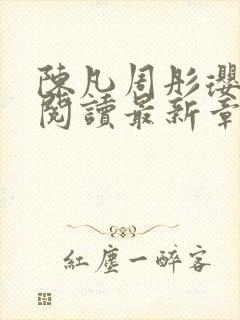 陳凡周彤瓔
閱讀最新章
紅塵一醉客